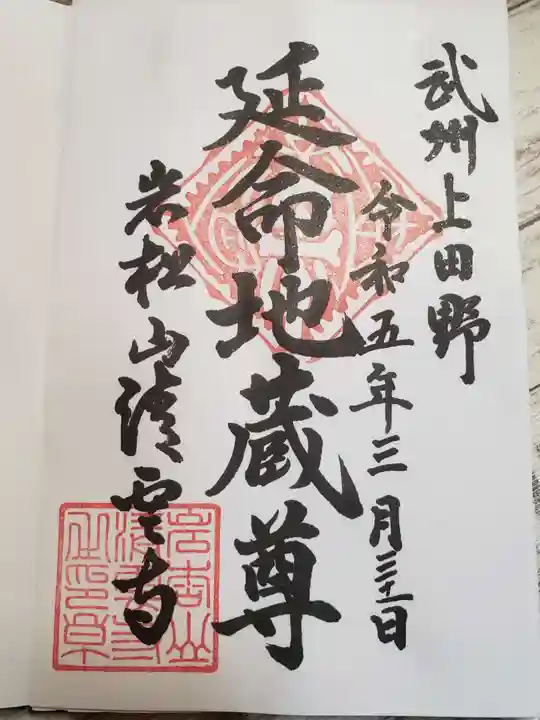 武州上田野
令和五年三月三十一日
延命地蔵尊
岩松山清雲寺